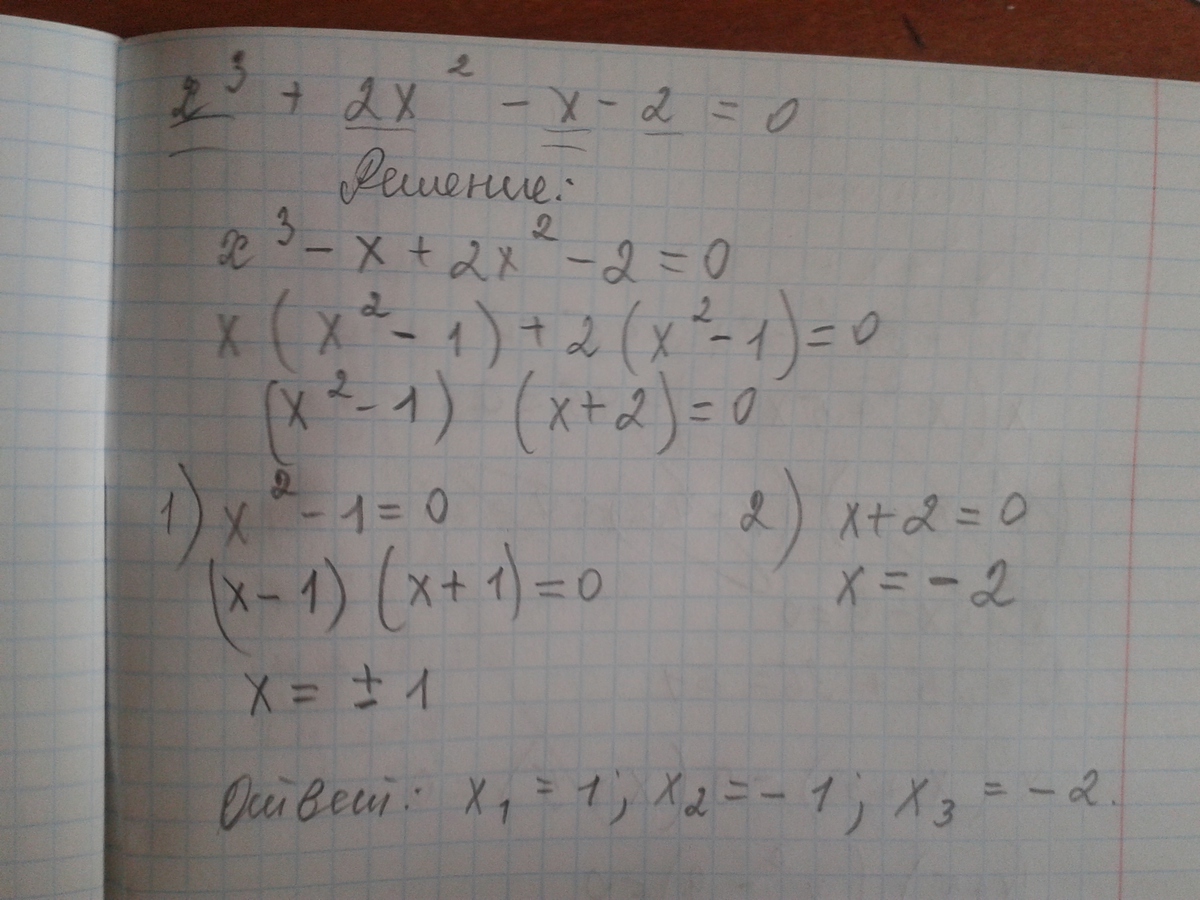 x³ + 2x² - x - 2 = 0
Решение:
x³ - x + 2x² - 2 = 0
x(x² - 1) + 2(x² - 1) = 0
(x² - 1) (x + 2) = 0
1) x² - 1 = 0 2) x + 2 = 0
(x - 1) (x + 1) = 0 x = - 2
x = ± 1
Ответ: x₁ = 1; x₂ = - 1; x₃ = - 2.